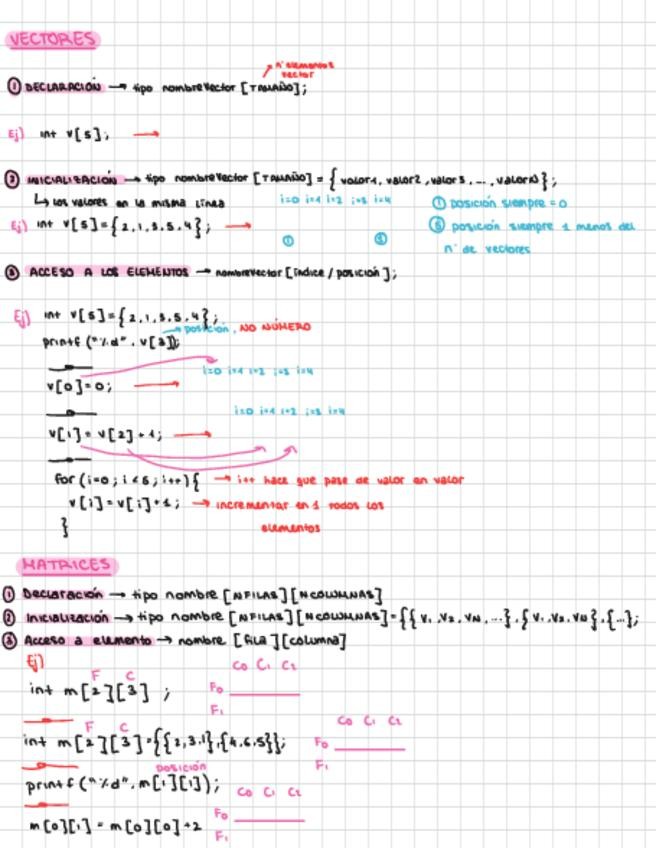 VECTORES
nº elementos
vector
① DECLARACIÓN → tipo nombreVector [TAMAÑO];
Ej) int v[5]; →
② INICIALIZACIÓN → tipo nombreVector [TAMAÑO] = { valor1, valor2, valor3, ..., valorN };
↳ los valores en la misma línea
i=0 i=1 i=2 i=3 i=4
① posición siempre = 0
Ej) int v[5]={2,1,3,5,4}; →
① ⑤
⑤ posición siempre 1 menos del
nº de vectores
③ ACCESO A LOS ELEMENTOS → nombreVector [índice / posición];
Ej) int v[5]={2,1,3,5,4};
→ posición, NO NÚMERO
printf ("%d", v[3]);
i=0 i=1 i=2 i=3 i=4
v[0]=0; →
i=0 i=1 i=2 i=3 i=4
v[1]= v[2]+1; →
for (i=0; i<5; i++){ → i++ hace que pase de valor en valor
v[i]=v[i]+1; → incrementar en 1 todos los
elementos
}
MATRICES
① Declaración → tipo nombre [NFILAS][NCOLUMNAS]
② Inicialización → tipo nombre [NFILAS][NCOLUMNAS]={{ V1, V2, VN, ...}, { V1, V2, VN}, {...};
③ Acceso a elemento → nombre [fila][columna]
Ej)
F C
C0 C1 C2
int m[2][3] ;
F0
F1
F C
C0 C1 C2
int m[2][3]={{2,3,1},{4,6,5}};
F0
F1
posición
printf ("%d", m[1][1]);
C0 C1 C2
F0
m[0][1] = m[0][0]+2
F1